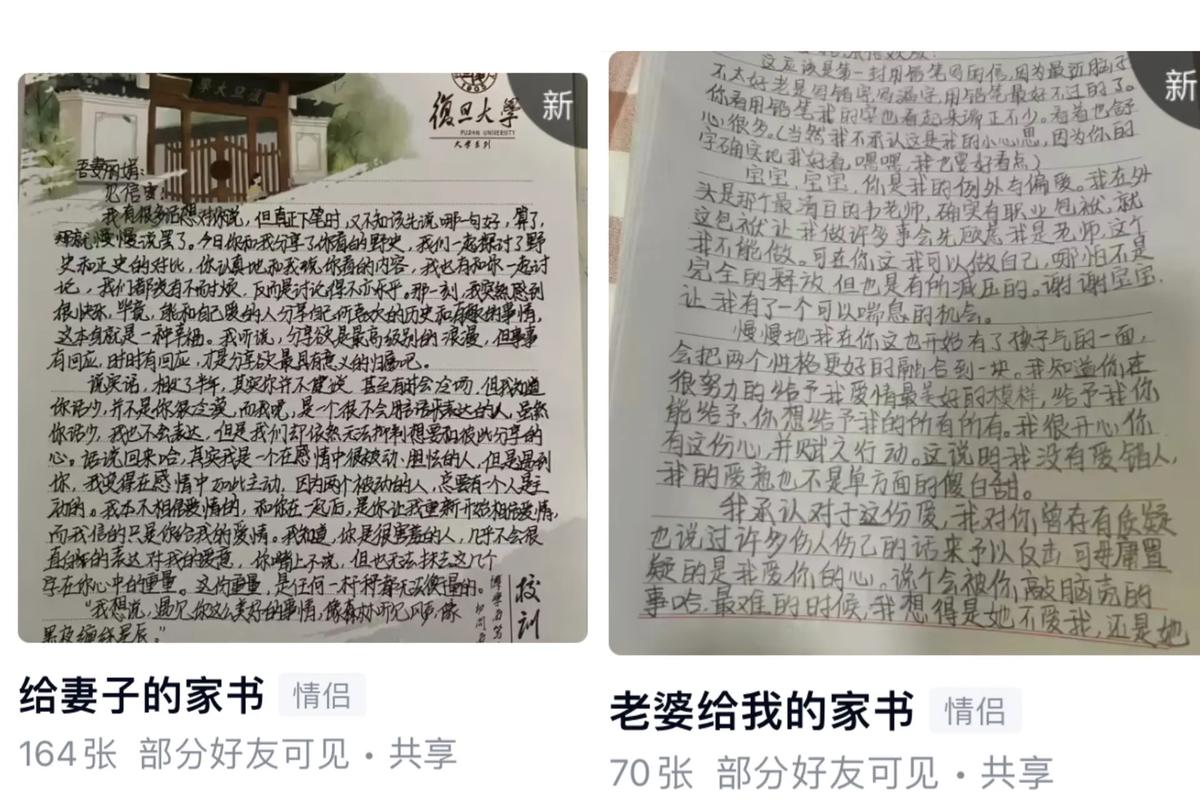 學大旦復
復旦大學
FUDAN UNIVERSITY
大学系列
新
吾妻丽娟：
见信安。
我有很多话想对你说，但真正下笔时，又不知该先说哪一句好，算了，
就慢慢说罢了。今日你和我分享了你看的野史，我们一起探讨了野
史和正史的对比，你认真地和我说你看的内容，我也有和你一起讨
论，我们都没有不耐烦，反而是讨论得不亦乐乎。那一刻，我突然感到
很快乐，毕竟，能和自己爱的人分享自己所喜欢的历史和有趣的事情，
这本身就是一种幸福。我听说，分享欲是最高级别的浪漫，但事事
有回应，时时有回应，才是分享欲最具有意义的归属吧。
说实话，相处了半年，其实你并不健谈，甚至有时会冷场，但我知道
你话少，并不是你很冷漠，而我呢，是一个很不会用话语来表达的人，虽然
你话少，我也不会表达，但是我们却依然无法抑制想要和彼此分享的
心。话说回来哈，其实我是一个在感情中很被动、胆怯的人，但是遇到
你，我变得在感情中如此主动，因为两个被动的人，总要有一个人是主
动的。我本不相信爱情的，和你在一起后，是你让我重新开始相信爱情，
而我信的只是你给我的爱情。我知道，你是很害羞的人，几乎不会很
直白的表达对我的爱意，你嘴上不说，但也无法抹去这几个
字在你心中的重量。这份重量，是任何一杆秤都无法衡量的。
“我想说，遇见你这么美好的事情，像森林听见风声，像
黑夜缠绵星辰。”
校训
给妻子的家书 情侣
164张 部分好友可见・共享
新
这应该是第一封用铅笔写的信，因为最近脑子
不太好老是写错字写漏字，用铅笔最好不过的了。
你看用铅笔我的字也看起来端正不少。看着也舒
心很多。（当然我不承认这是我的小心思，因为你的
字确实比我好看，嘿嘿，我也要好看点）
宝宝，宝宝，你是我的例外与偏爱。我在外
头是那个最清白的书老师，确实有职业包袱，就
这包袱让我做许多事会先顾虑我是老师，这个
我不能做。可在你这我可以做自己，哪怕不是
完全的释放，但也是有所减压的。谢谢宝宝，
让我有了一个可以喘息的机会。
慢慢地我在你这也开始有了孩子气的一面，
会把两个性格更好的融合到一块。我知道你在
很努力的给予我爱情最美好的模样，给予我你
能给予，你想给予我的所有所有。我很开心你
有这份心，并赋之行动。这说明我没有爱错人，
我的爱着也不是单方面的傻白甜。
我承认对于这份爱，我对你曾存有质疑
也说过许多伤人伤己的话来予以反击，可毋庸置
疑的是我爱你的心。说个会被你敲脑壳的
事哈，最难的时候，我想得是她不爱我，还是她
老婆给我的家书 情侣
70张 部分好友可见・共享